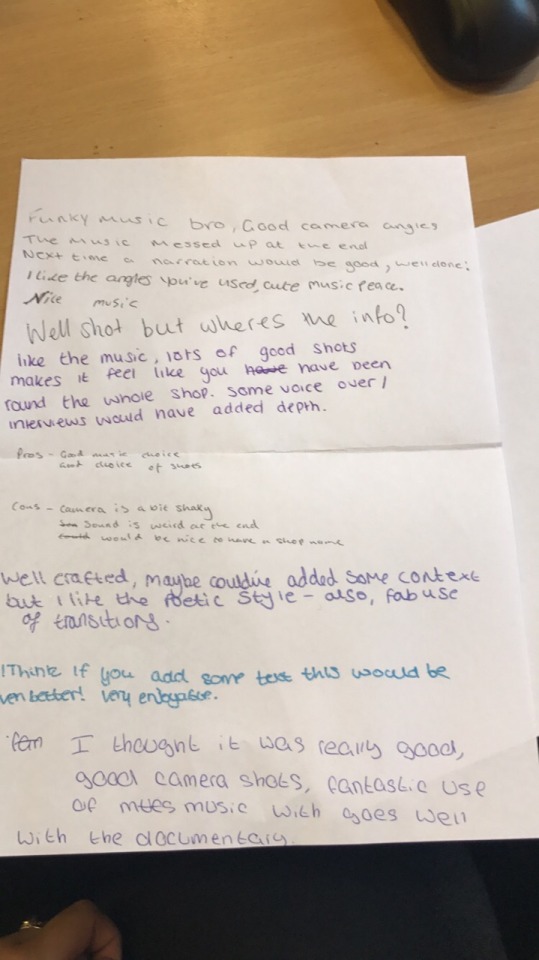 Funky music bro, Good camera angles
The music messed up at the end
Next time a narration would be good, well done!
I like the angles you've used, cute music peace.
Nice music
Well shot but wheres the info?
like the music, lots of good shots
makes it feel like you have have been
round the whole shop. some voice over/
interviews would have added depth.
Pros - Good music choice
Good choice of shots
Cons - camera is a bit shaky
Sound is weird at the end
could would be nice to have a shop name
Well crafted, maybe couldive added some context
but I like the Poetic Style - also, fab use
of transitions.
I Think if you add some text this would be
ven better! very enjoyable.
I thought it was really good,
good camera shots, fantastic use
of music with goes well
with the documentary.